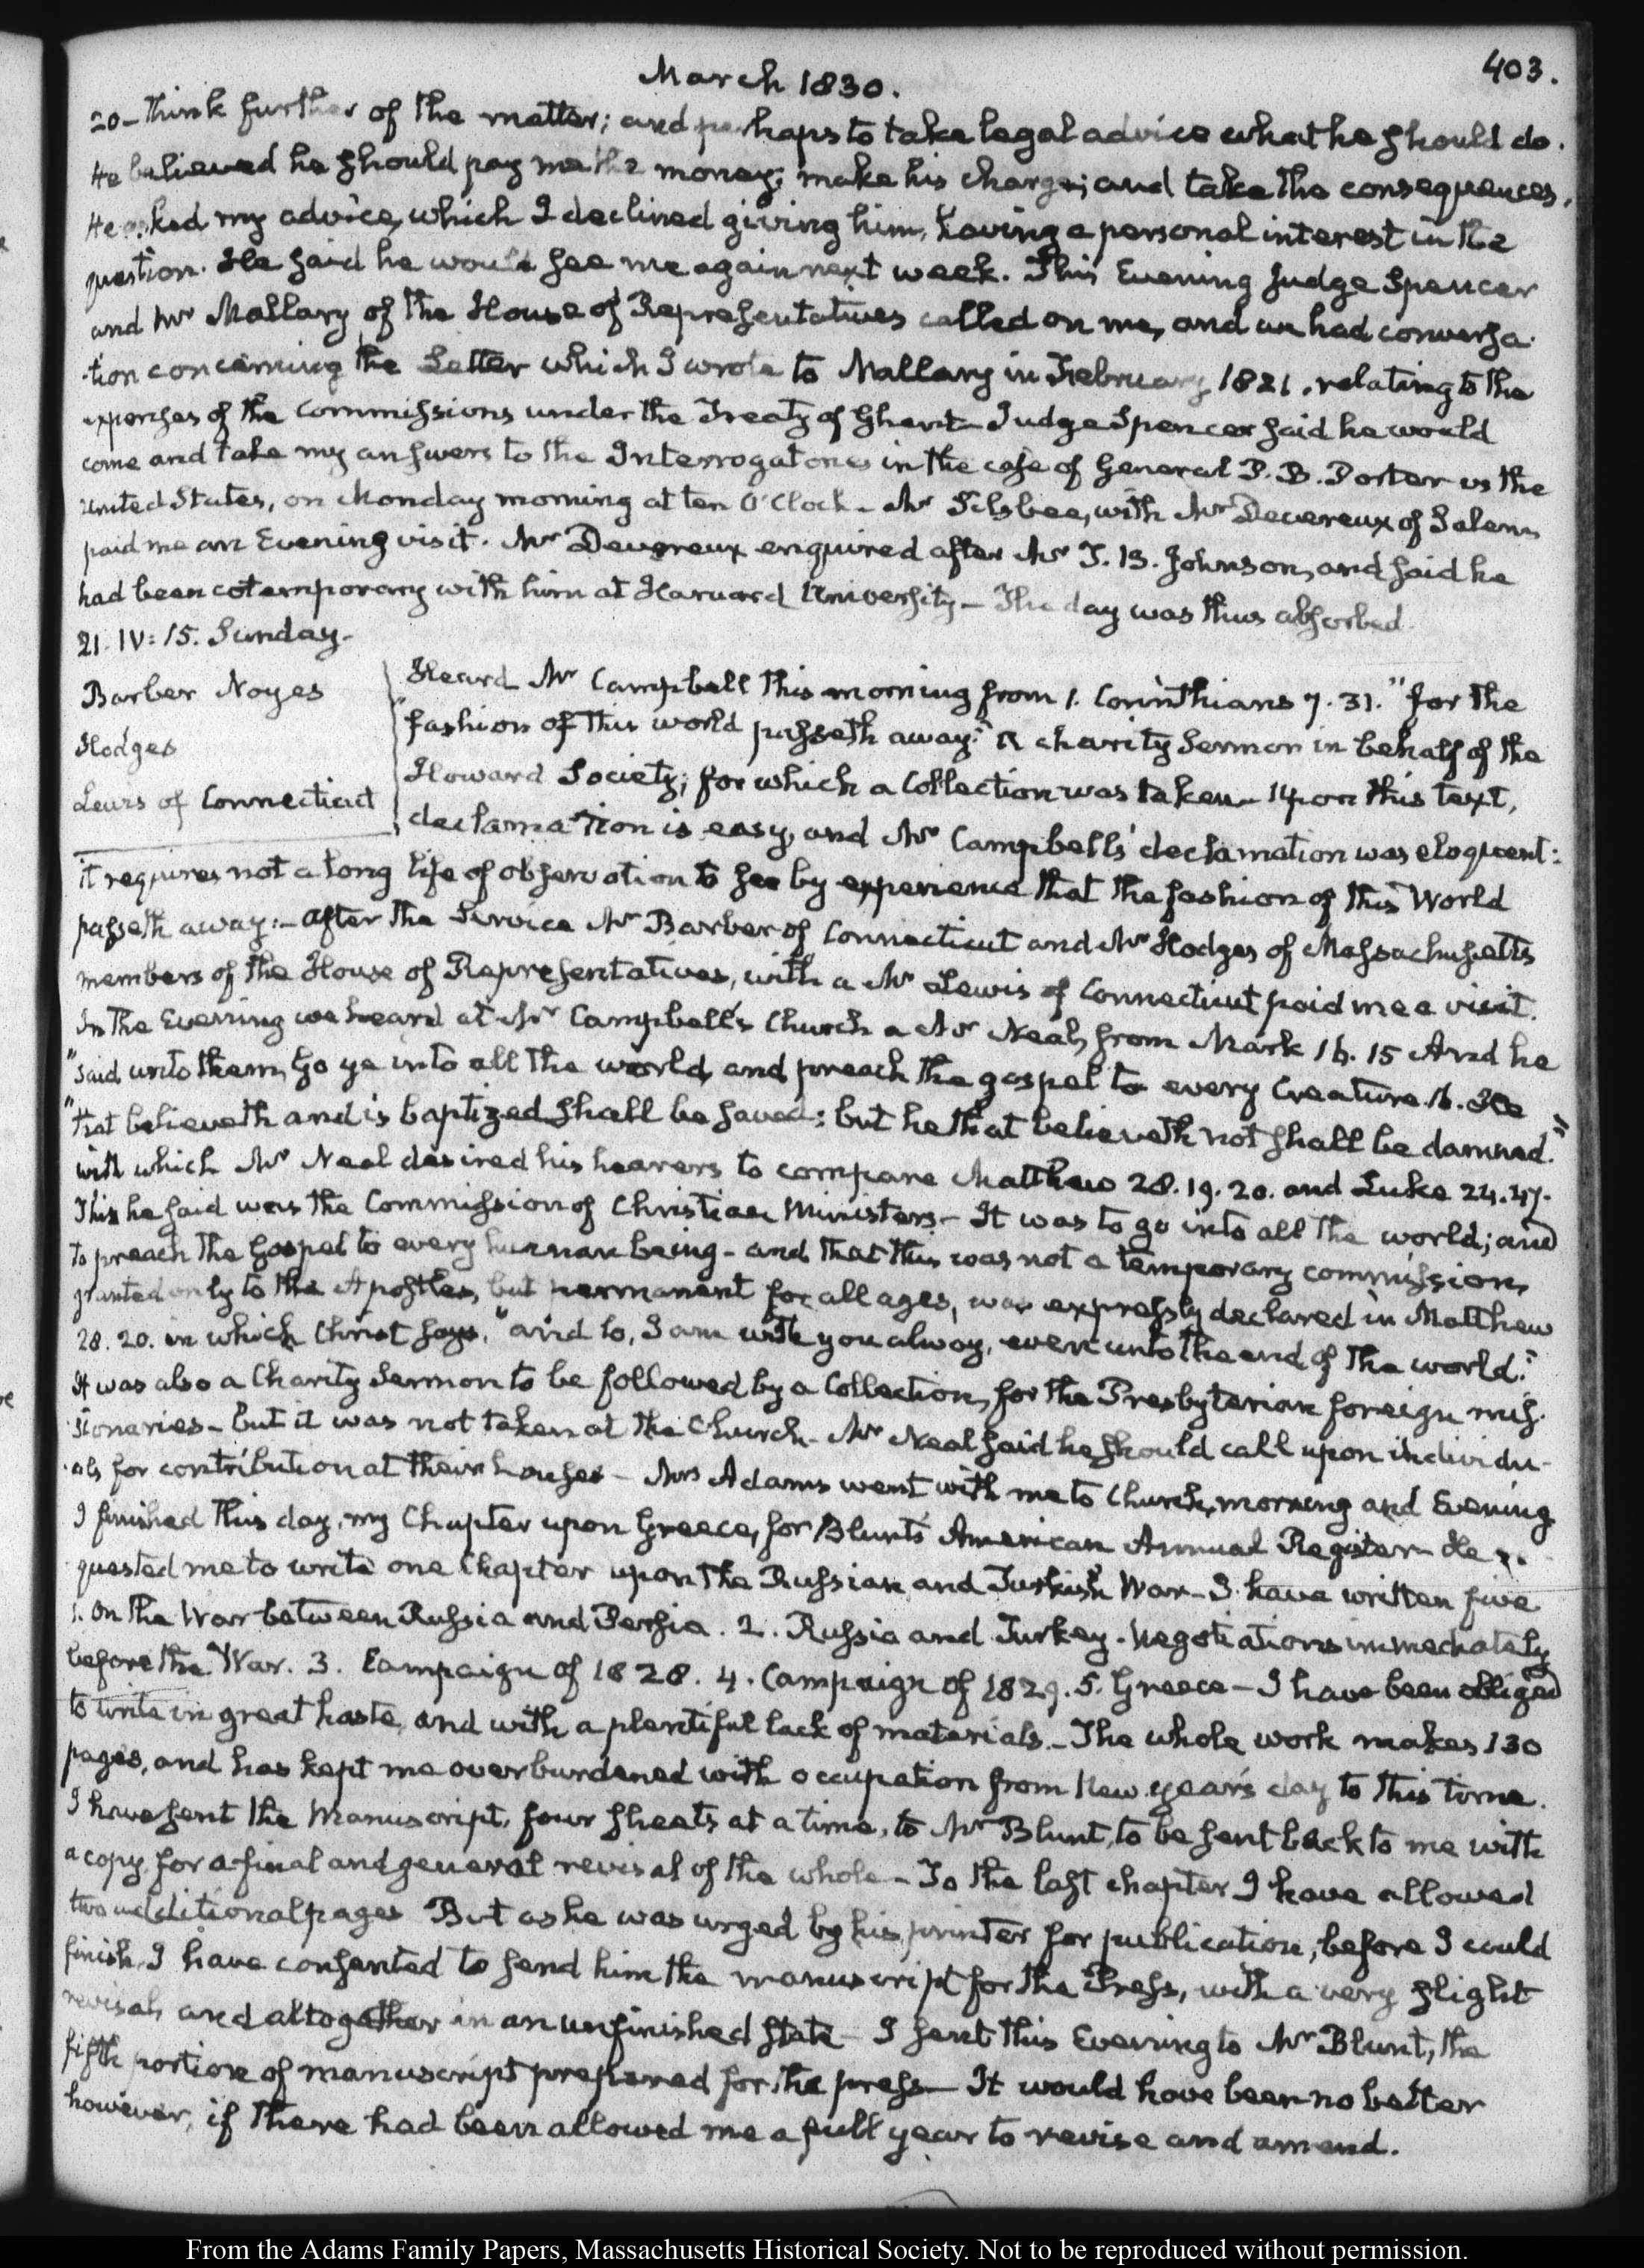 March 1830.
403.
20 - think further of the matter; and perhaps to take legal advice what he should do.
He believed he should pay me the money; make his charge; and take the consequences.
He asked my advice, which I declined giving him, having a personal interest in the
question. He said he would see me again next week. This Evening Judge Spencer
and Mr Mallary of the House of Representatives called on me, and we had conversa-
-tion concerning the Letter which I wrote to Mallary in February 1821. relating to the
expenses of the Commissions under the Treaty of Ghent - Judge Spencer said he would
come and take my answers to the Interrogatories in the case of General P. B. Porter vs the
United States, on Monday morning at ten O'Clock - Mr Silsbee, with Mr Devereux of Salem
paid me an Evening visit. Mr Devereux enquired after Mr T. B. Johnson, and said he
had been cotemporary with him at Harvard University - The day was thus absorbed.
21. IV: 15. Sunday.
Barber Noyes
Hodges
Lewis of Connecticut
Heard Mr Campbell this morning from 1. Corinthians 7. 31. "for the
"fashion of this world passeth away." A charity Sermon in behalf of the
Howard Society; for which a Collection was taken - Upon this text,
declamation is easy, and Mr Campbell's declamation was eloquent:
it requires not a long life of observation to see by experience that the fashion of this World
passeth away: - After the Service Mr Barber of Connecticut and Mr Hodges of Massachusetts
members of the House of Representatives, with a Mr Lewis of Connecticut paid me a visit.
In the Evening we heard at Mr Campbell's Church a Mr Neal, from Mark 16. 15 And he
"said unto them, Go ye into all the world, and preach the gospel to every Creature. 16. He
"that believeth and is baptized shall be saved; but he that believeth not shall be damned."
with which Mr Neal desired his hearers to compare Matthew 28. 19. 20. and Luke 24. 47.
This he said was the Commission of Christian Ministers - It was to go into all the world; and
to preach the Gospel to every human being - and that this was not a temporary commission,
granted only to the Apostles, but permanent for all ages, was expressly declared in Matthew
28. 20. in which Christ says, "and lo, I am with you alway, even unto the end of the world."
It was also a Charity Sermon to be followed by a Collection, for the Presbyterian foreign mis-
-sionaries - but it was not taken at the Church - Mr Neal said he should call upon individu-
-als for contribution at their houses - Mrs Adams went with me to Church, morning and Evening.
I finished this day, my Chapter upon Greece, for Blunt's American Annual Register - He re-
quested me to write one Chapter upon the Russian and Turkish War - I have written five
1. On the War between Russia and Persia. 2. Russia and Turkey. Negotiations immediately
before the War. 3. Campaign of 1828. 4. Campaign of 1829. 5. Greece - I have been obliged
to write in great haste, and with a plentiful lack of materials. - The whole work makes 130
pages, and has kept me overburdened with occupation from New year's day to this time.
I have sent the Manuscript, four sheets at a time, to Mr Blunt, to be sent back to me with
a copy, for a final and general revisal of the whole - To the last chapter I have allowed
two additional pages But as he was urged by his printer for publication, before I could
finish, I have consented to send him the manuscript for the Press, with a very slight
revisal, and altogether in an unfinished state - I sent this Evening to Mr Blunt, the
fifth portion of manuscript prepared for the press - It would have been no better
however, if there had been allowed me a full year to revise and amend.
From the Adams Family Papers, Massachusetts Historical Society. Not to be reproduced without permission.